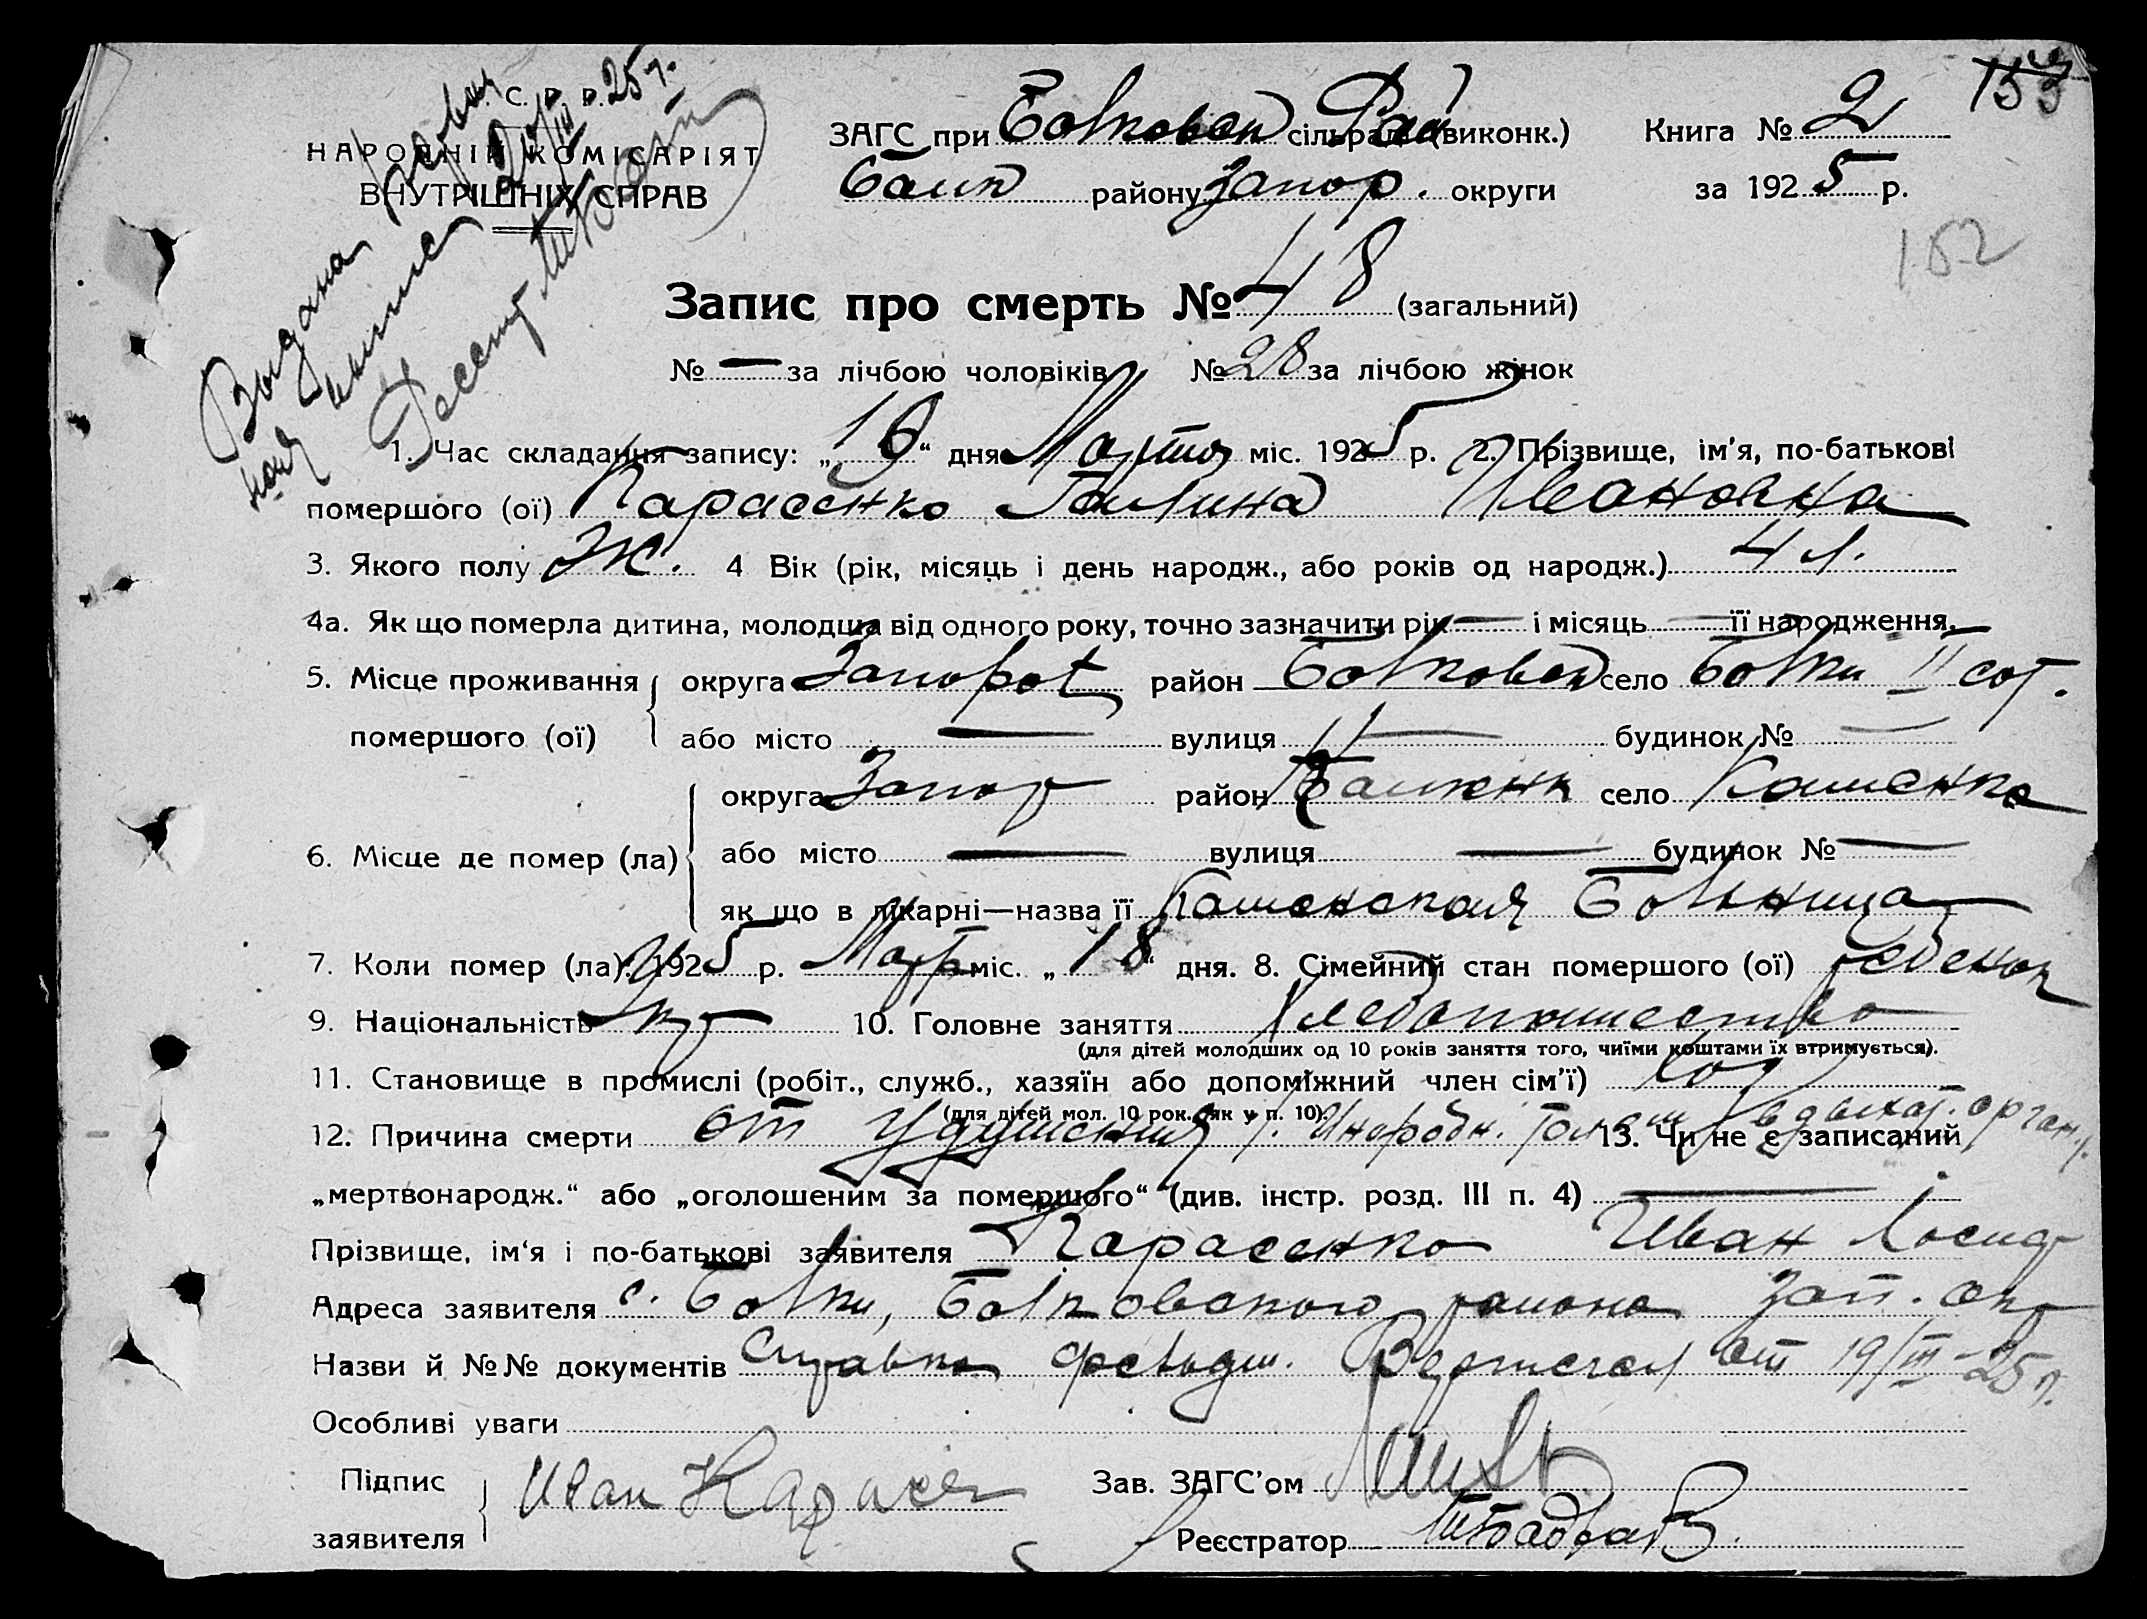 153
С. Р. Р.
НАРОДНІЙ КОМІСАРІЯТ
ВНУТРІШНІХ СПРАВ
Выдана
выпис
25 г.
ЗАГС при сільраді (виконк.) Книга № 2
району Запор. округи за 1925 р.
152
Запис про смерть № 48 (загальний)
№ — за лічбою чоловіків № 28 за лічбою жінок
1. Час складання запису: „19“ дня Марта міс. 1925 р. 2. Прізвище, ім'я, по-батькові
помершого (ої) Карасенко Галина Ивановна
3. Якого полу ж. 4 Вік (рік, місяць і день народж., або років од народж.) 4 л.
4а. Як що померла дитина, молодша від одного року, точно зазначити рік — і місяць — її народження.
5. Місце проживання округа Запорож район село Балки II сот.
помершого (ої) або місто — вулиця — будинок № —
округа Запор район село Каменка
6. Місце де помер (ла) або місто — вулиця — будинок № —
як що в лікарні—назва її Каменская Больница
7. Коли помер (ла): 1925 р. Март міс. „18“ дня. 8. Сімейний стан помершого (ої) ребенок
9. Національність Укр 10. Головне заняття Хлебопашество
(для дітей молодших од 10 років заняття того, чиїми коштами їх втримується).
11. Становище в промислі (робіт., служб., хазяїн або допоміжний член сім'ї) хоз
(для дітей мол. 10 рок. як у п. 10).
12. Причина смерти от Удушения 13. Чи не є записаний
„мертвонародж.“ або „оголошеним за помершого“ (див. інстр. розд. III п. 4) —
Прізвище, ім'я і по-батькові заявителя Карасенко Иван
Адреса заявителя с. Балки, Балковского района Зап. окр
Назви й №№ документів Справка фельдш. от 19/III-25 г.
Особливі уваги
Підпис Иван Зав. ЗАГС'ом
заявителя Реєстратор